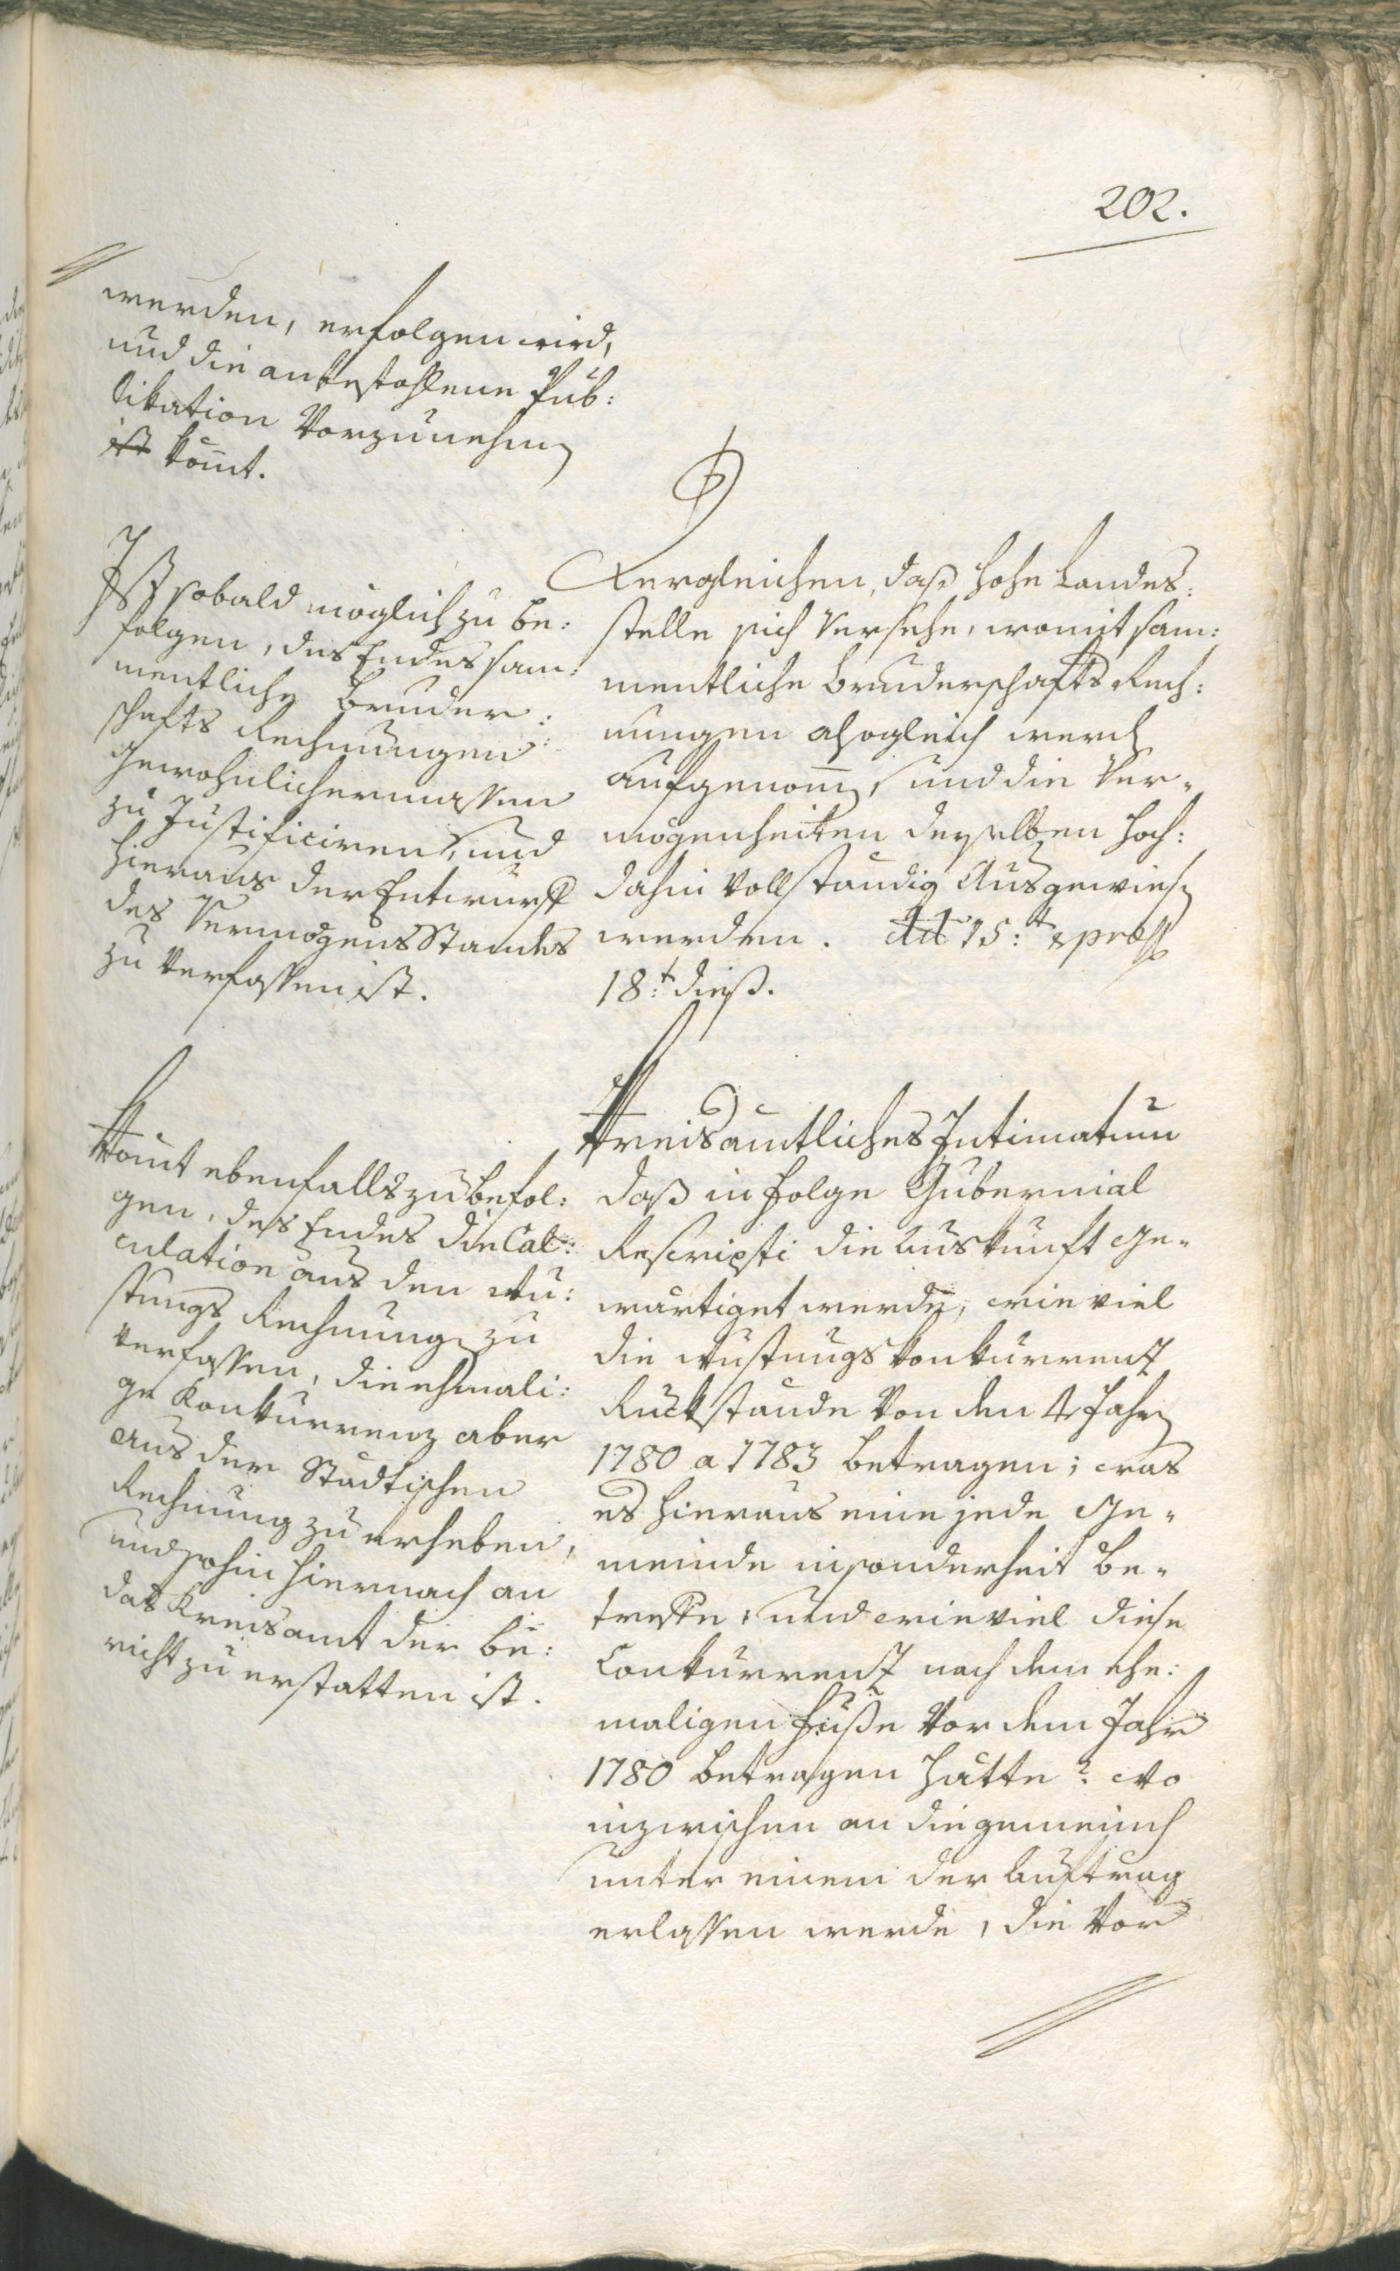 202.
werden, erfolgen wird,
und die anbefohlene Pub:
likation Vorzunehmen
ist kömt.
Ist sobald möglich zu be:
folgen, des Endes sam:
mentliche Bruder:
schafts Rechnungen
gewohnlichermassen
zu Justificiren, und
hieraus der Entwurf
des Vermögens Standes
zu Verfassen ist.
Kömt ebenfalls zu befol:
gen, des Endes die Cal:
culation aus den
stungs Rechnungen zu
verfassen, die ehmali:
ge Konkurrenz aber
aus der Stadtischen
Rechnung zu erheben,
und sohin hiernach an
das Kreisamt der be:
richt zu erstatten ist.
Dergleichen, daß hohe Landes:
stelle sich Versehe, womit sam:
mentliche Bruderschafts Rech:
nungen alsogleich werden
aufgenomen, und die Ver-
mögenheiten derselben hoch:
dahin Vollständig Ausgewiesen
werden. dtt 15:t & praes
18:t dieß.
Kreisamtliches Intimatum
daß in folge Gubernial
Rescripti die Auskunft ge-
wartiget werde, wie viel
die Konkurrenz
Rückstande Von den 4 Jahren
1780 a 1783 betragen; was
es hieraus eine jede Ge-
meinde insonderheit be-
treffe, und wie viel diese
Conkurrenz nach dem ehe:
maligen Fuße Vor dem Jahr
1780 betragen hätte? Wo
inzwischen an die gemeinden
unter einem der Auftrag
erlassen werde, die Vor